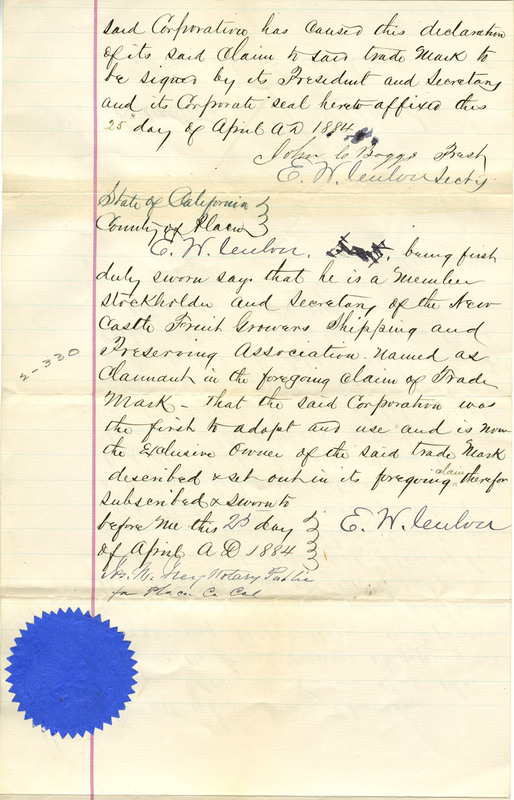 said Corporation has caused this declaration
of its said Claim to said trade Mark to
be signed by its President and Secretary
and its Corporate seal hereto affixed this
25" day of April A D 1884
John C Boggs Prest
E. W. Secty
State of California
County of Placer
E. W. being first
duly sworn says that he is a Member
stockholder and Secretary of the New
Castle Fruit Growers Shipping and
Preserving Association. Named as
Claimant in the foregoing claim of Trade
Mark - That the said Corporation was
the first to adopt and use and is now
the Exclusive Owner of the said trade Mark
described & set out in its foregoing claim therefor
subscribed & sworn to
before me this 25 day
of April A D 1884
E. W.
Notary Public
for Placer Co Cal
2-330